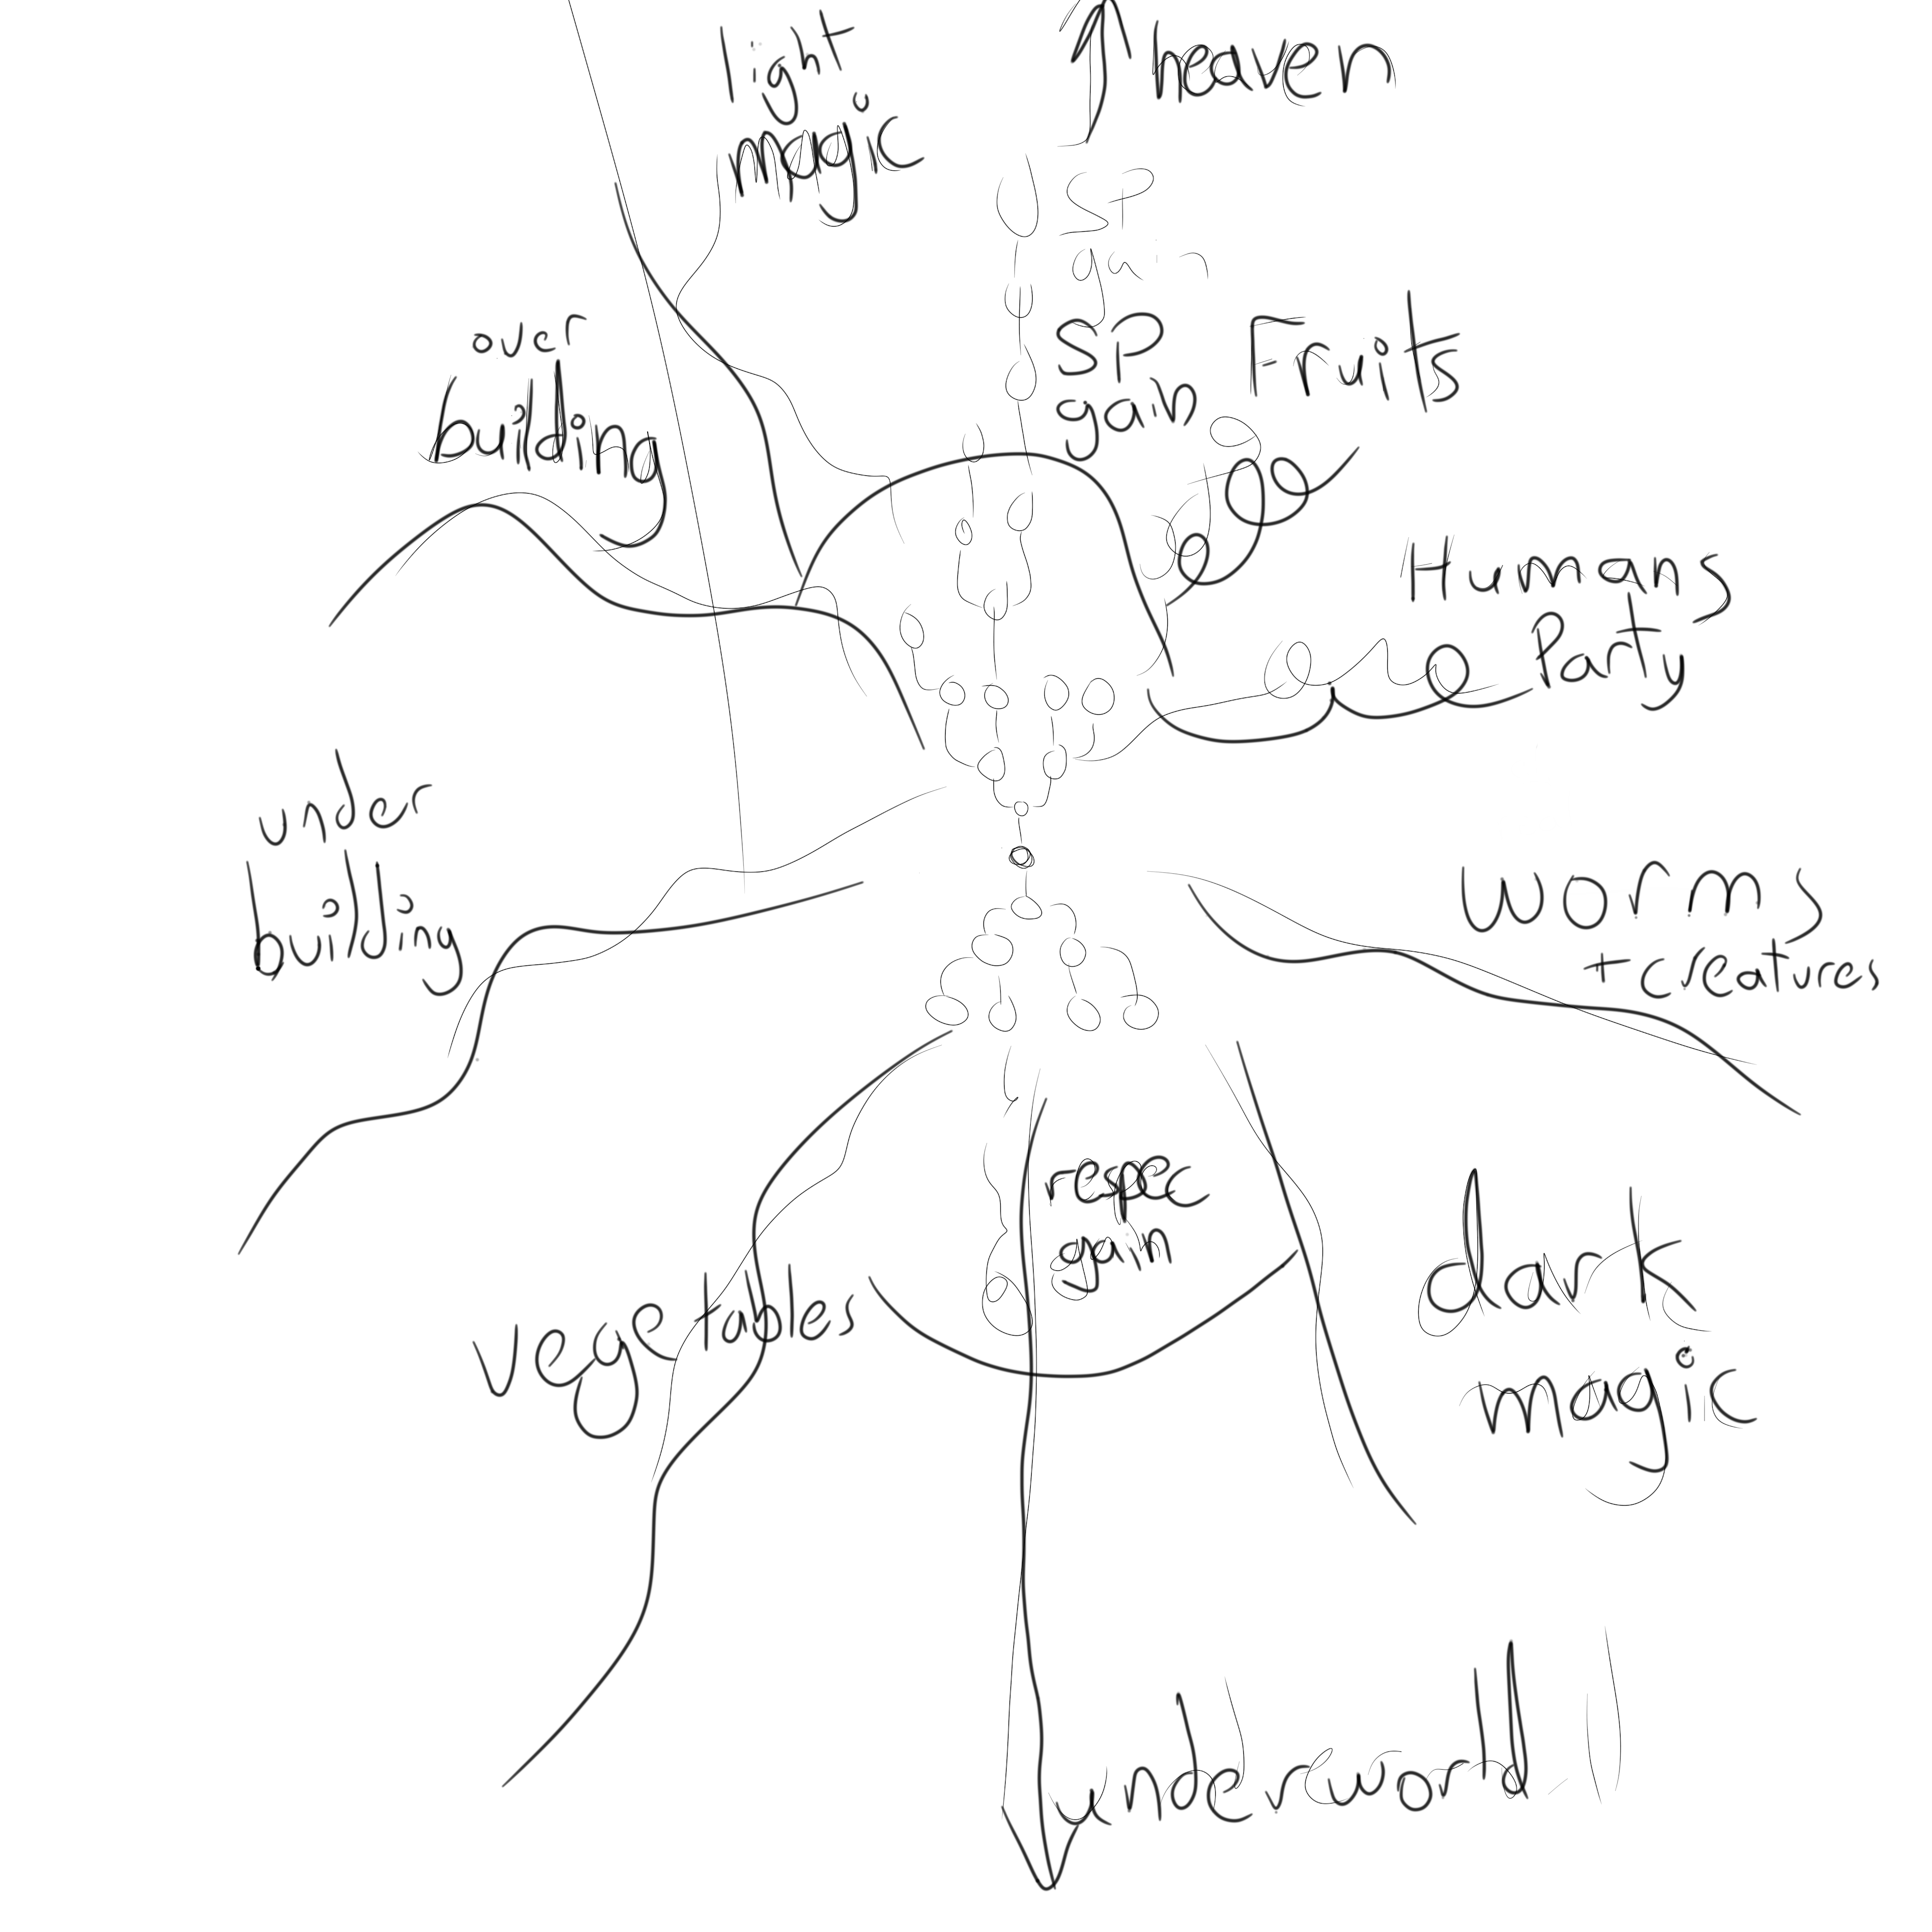 light
magic
↑ heaven
SP
gain
SP
gain
Fruits
over
building
Humans
Party
under
building
worms
+ creatures
respec
gain
vegetables
dark
magic
underworld